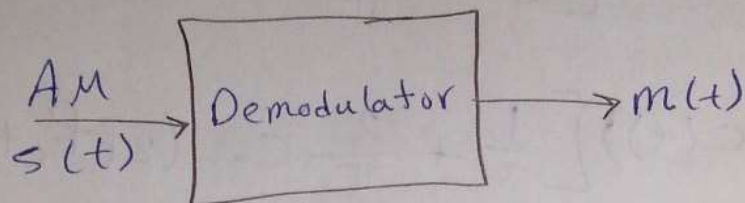 AM
s(t)
Demodulator
m(t)